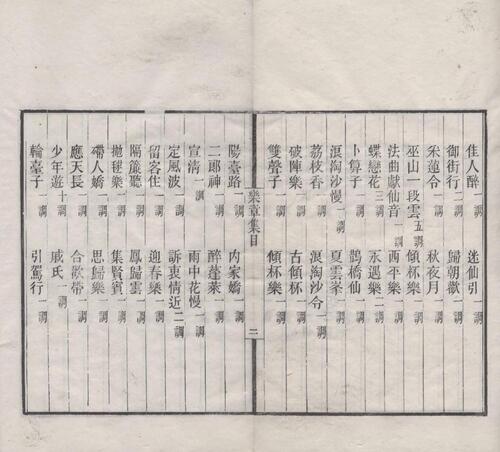 佳人醉一調 迷仙引一調
御街行二調 歸朝歡一調
采蓮令一調 秋夜月一調
巫山一段雲五調 傾杯樂一調
法曲獻仙音一調 西平樂一調
蝶戀花三調 永遇樂二調
卜算子一調 鵲橋仙一調
浪淘沙慢一調 夏雲峯一調
荔枝香一調 浪淘沙令一調
破陣樂一調 古傾杯一調
雙聲子一調 傾杯樂一調
樂章集目 二
陽臺路一調 內家嬌一調
二郎神一調 醉蓬萊一調
宣清一調 雨中花慢一調
定風波一調 訴衷情近二調
留客住一調 迎春樂一調
隔簾聽一調 鳳歸雲一調
拋毬樂一調 集賢賓一調
殢人嬌一調 思歸樂一調
應天長一調 合歡帶一調
少年遊十調 戚氏一調
輪臺子一調 引駕行一調